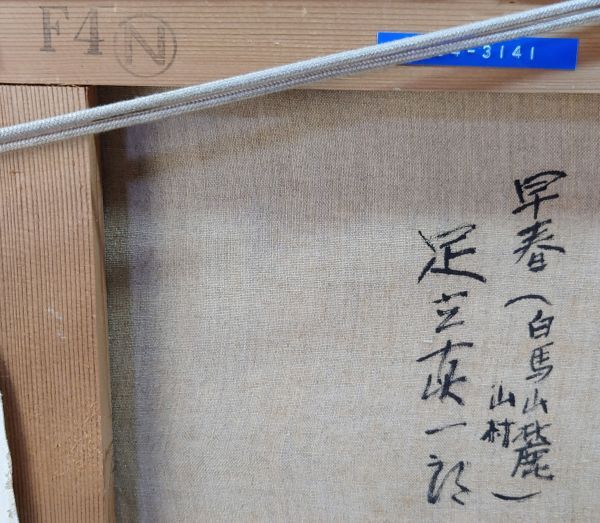 F4 N
4-3141
早春(白馬山麓
山村)
足立真一郎